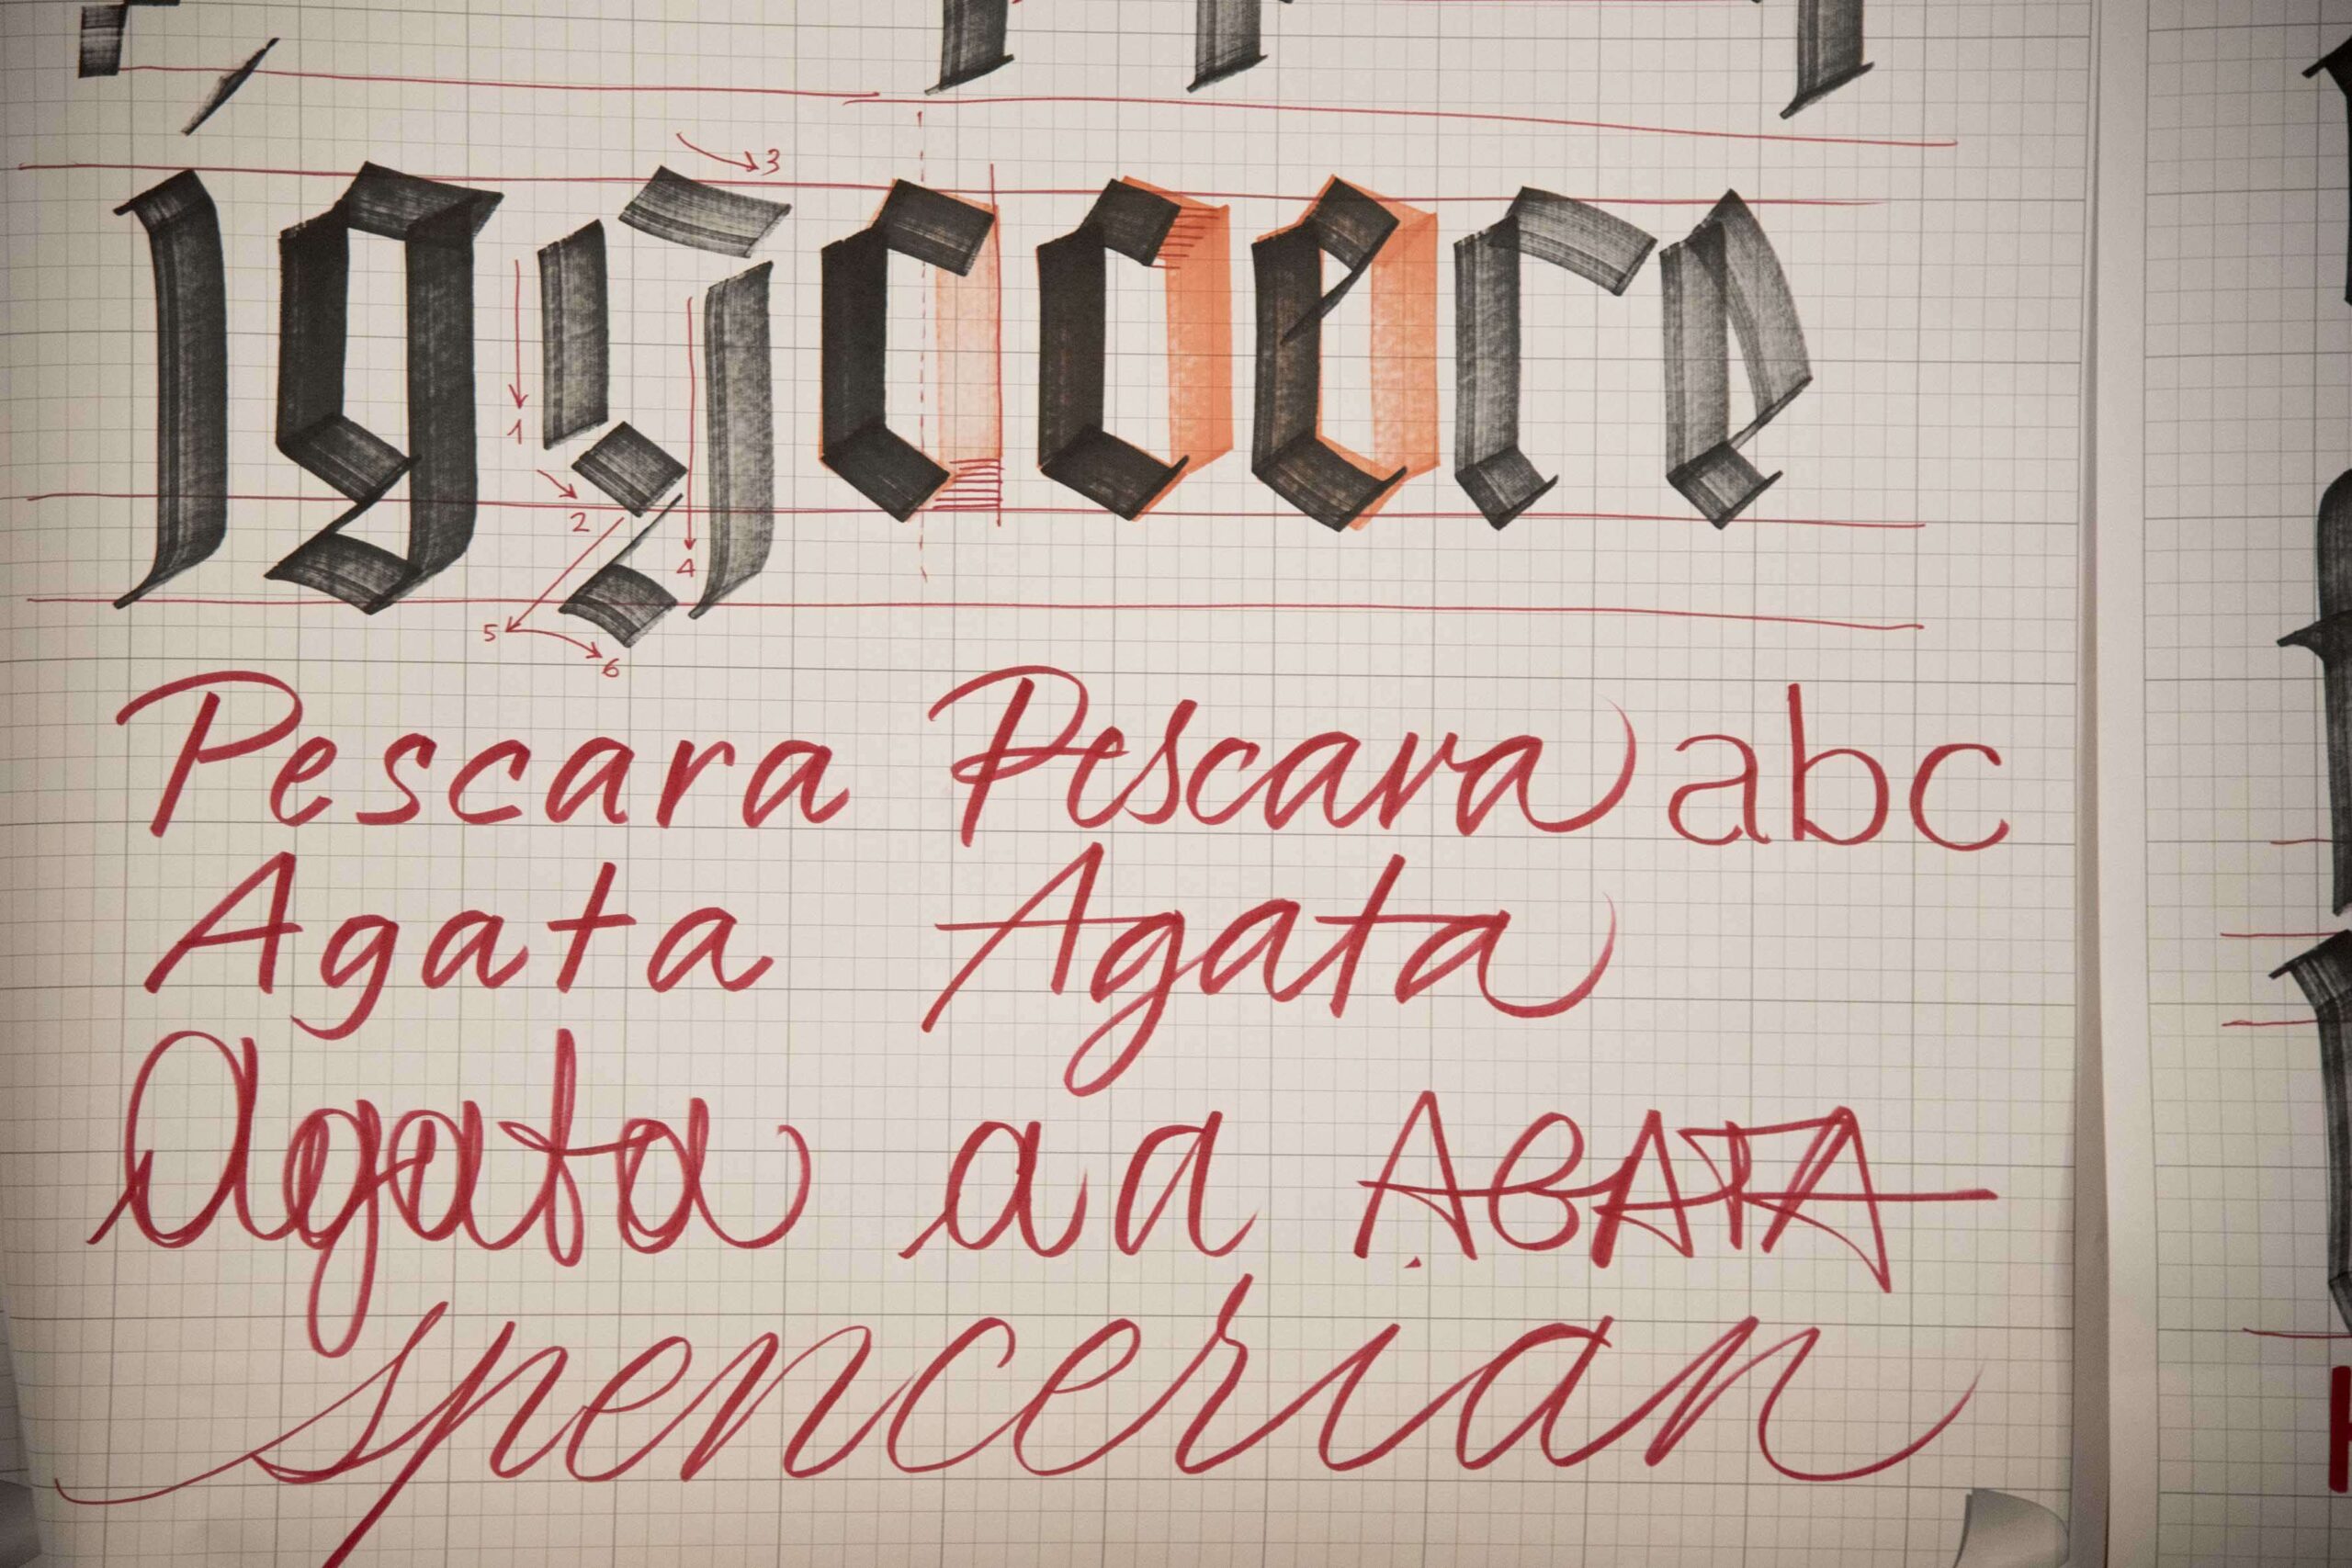 g 1 2 3 4 5 6 c c e c e
Pescara Pescara abc
Agata Agata
Agata a a AGATA
spencerian